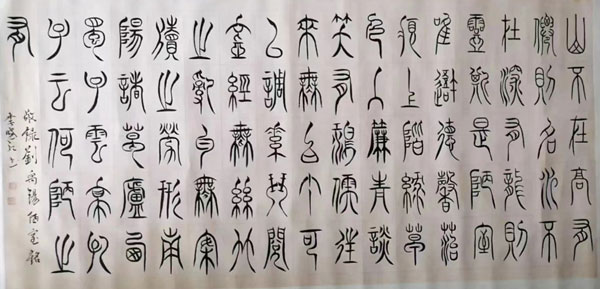 山不在高有
僊則名水不
在深有龍則
靈斯是陋室
唯吾德馨苔
痕上階綠草
色入簾青談
笑有鴻儒往
來無白丁可
以調素琴閱
金經無絲竹
之亂耳無案
牘之勞形南
陽諸葛廬西
蜀子雲亭孔
子云何陋之
有
敬錄劉禹錫陋室銘